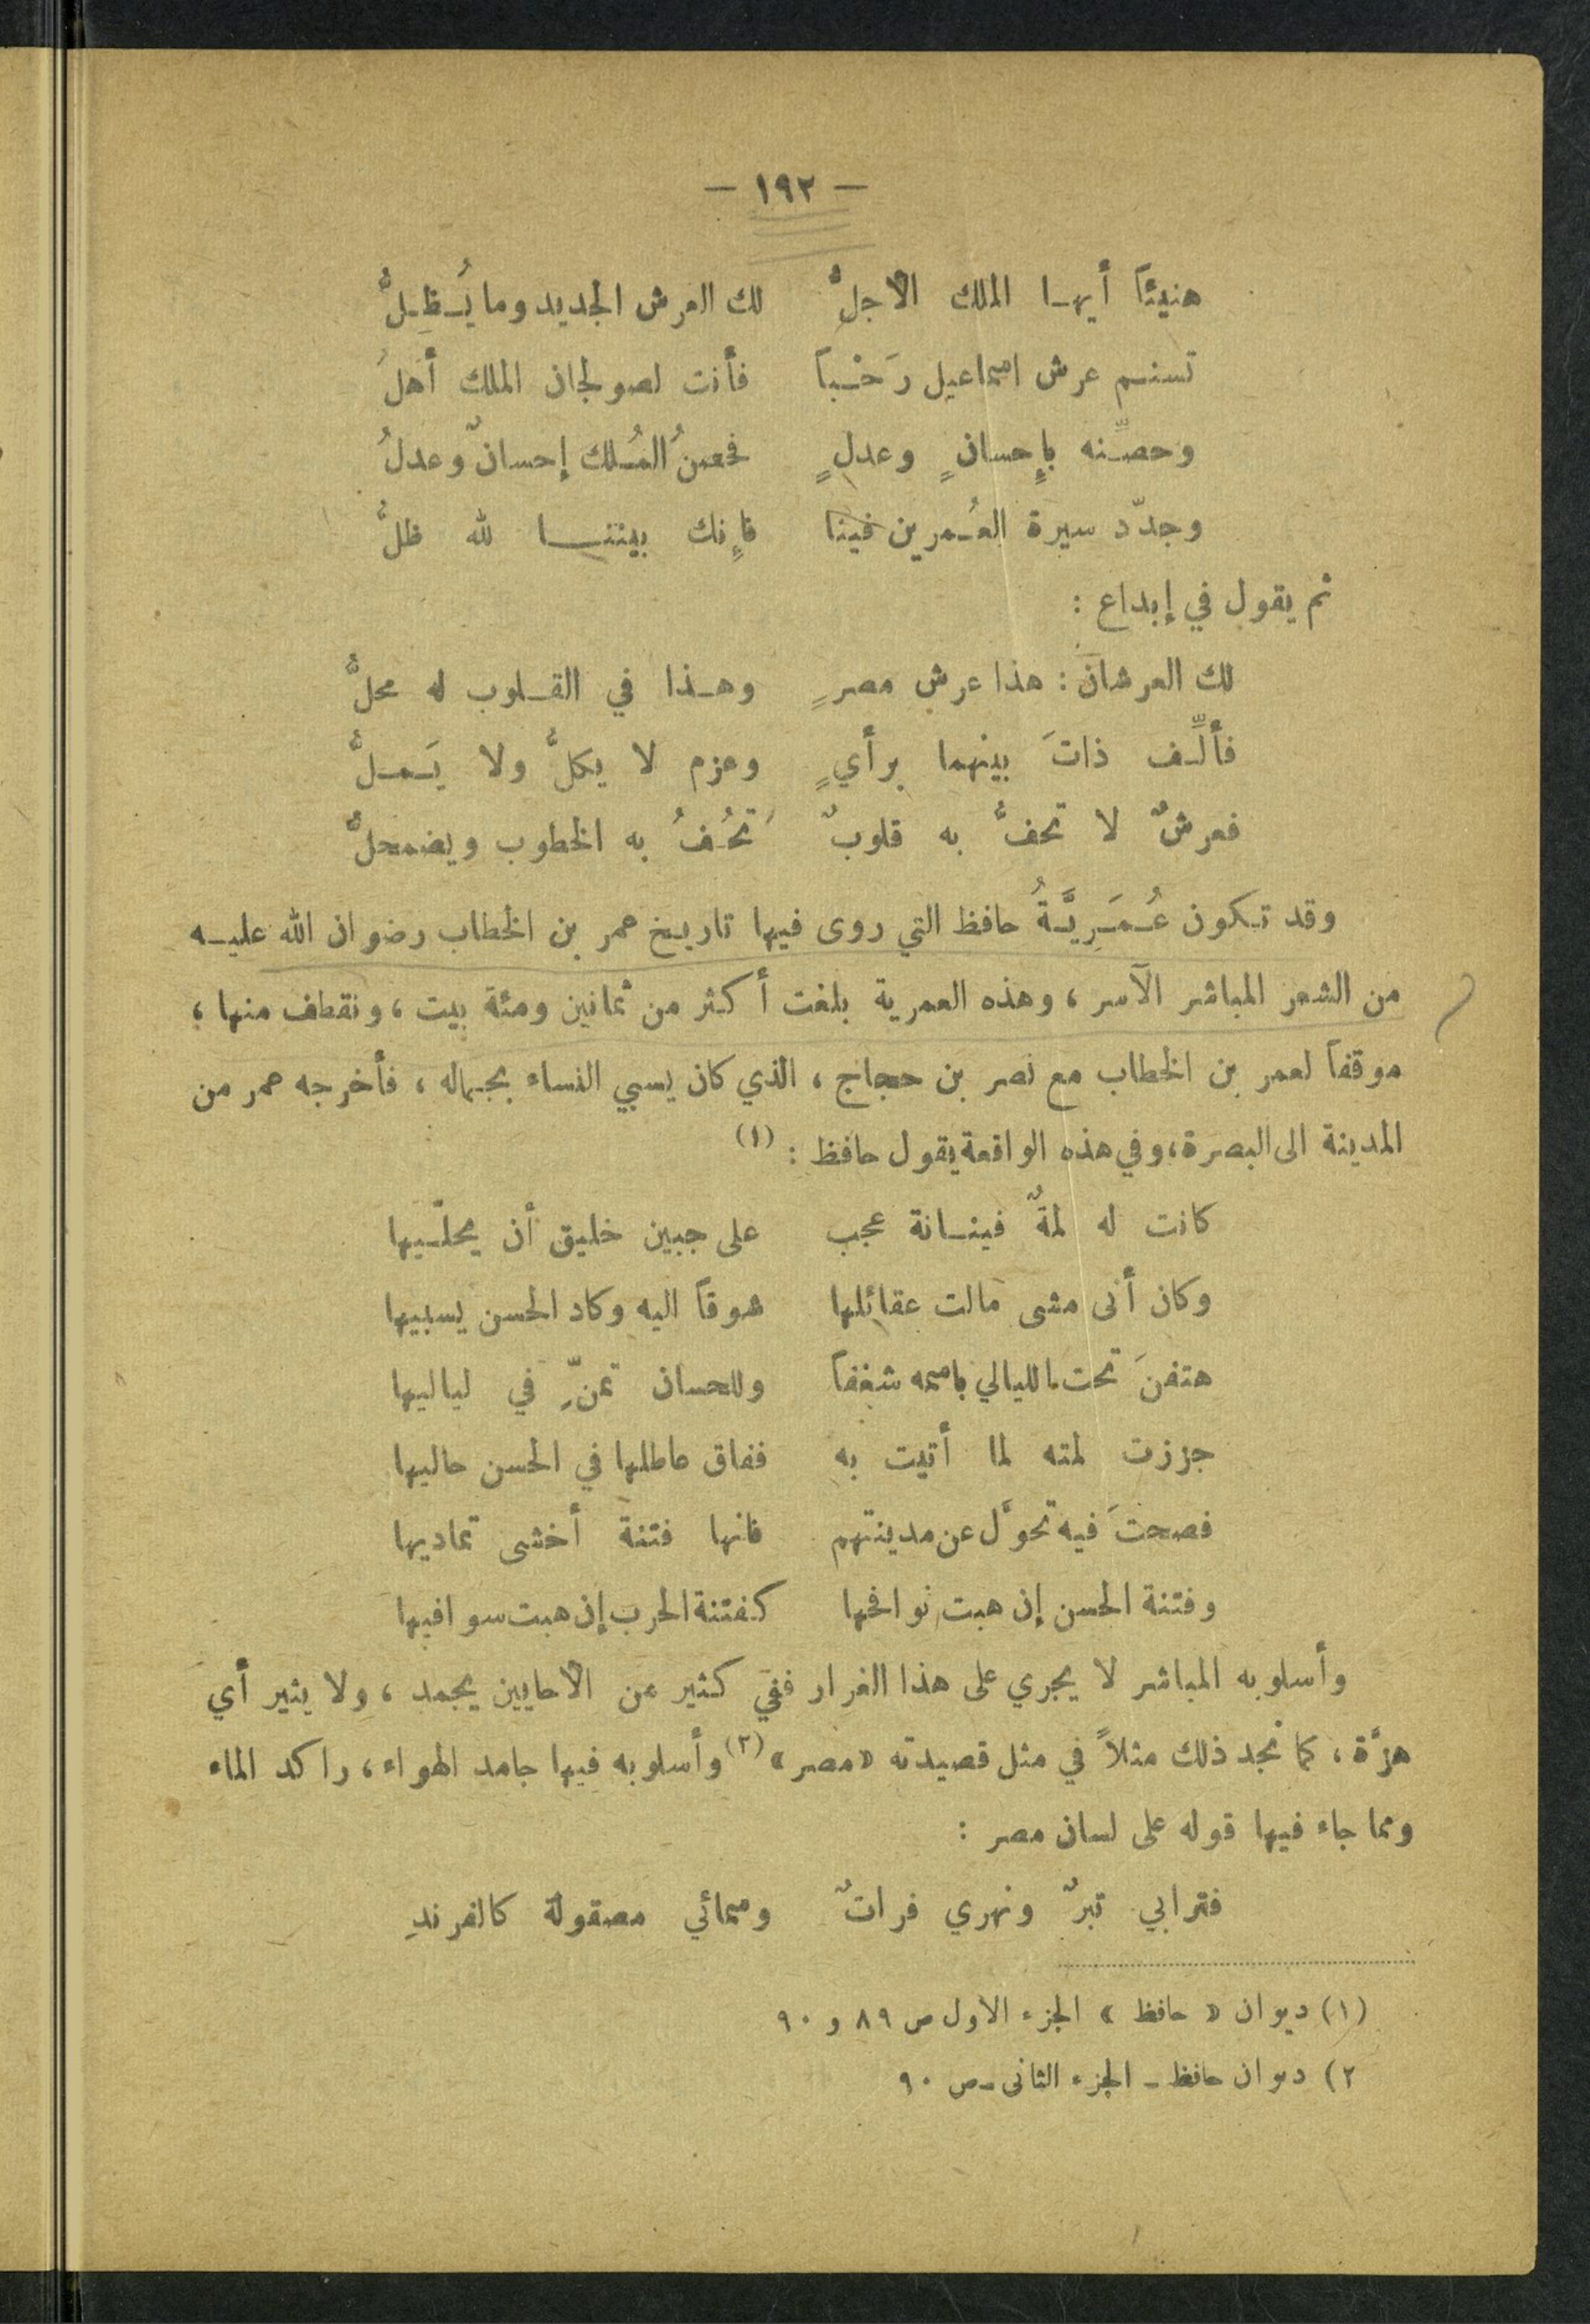 — ١٩٢ —
هنيئاً أيهـا الملك الأجلُّ لك العرش الجديد وما يُـظِـلُّ
تسنـم عرش اسماعيل رَحْـباً فأنت لصولجان الملك أهلُ
وحصِّـنه بإحسانٍ وعدلٍ فحصنُ المُـلك إحسانٌ وعدلُ
وجدّد سيرة العُـمرين فينا فإنك بيننـــا لله ظلُّ
ثم يقول في إبداع :
لك العرشان : هذا عرش مصرٍ وهـذا في القـلوب له محلُّ
فألِّـف ذاتَ بينهما برأيٍ وعزم لا يكلُّ ولا يَـمـلُّ
فعرشٌ لا تحفُّ به قلوبٌ تَحُـفُ به الخطوب ويضمحلُّ
وقد تـكون عُـمَـرِيَّـةُ حافظ التي روى فيها تاريـخ عمر بن الخطاب رضوان الله عليـه
من الشعر المباشر الآسر ، وهذه العمرية بلغت أكثر من ثمانين ومئة بيت ، ونقطف منها ،
موقفاً لعمر بن الخطاب مع نصر بن حجاج ، الذي كان يسبي النساء بجـماله ، فأخرجه عمر من
المدينة الى البصرة ، وفي هذه الواقعة يقول حافظ : (١)
كانت له لمةٌ فينـانة عجب على جبين خليق أن يحلّـيها
وكان أنى مشى مالت عقائلها شوقاً اليه وكاد الحسن يسبيها
هتفنَ تحت الليالي باسمه شغفاً وللحسان تمنٍّ في لياليها
جززت لمته لما أتيت به ففاق عاطلها في الحسن حاليها
فصحتَ فيه تحوَّل عن مدينتهم فانها فتنة أخشى تماديها
وفتنة الحسن إن هبت نوافحها كفتنة الحرب إن هبت سوافيها
وأسلوبه المباشر لا يجري على هذا الغرار ففي كثير من الأحايين يجمد ، ولا يثير أي
هزّة ، كما نجد ذلك مثلاً في مثل قصيدته «مصر» (٢) وأسلوبه فيها جامد الهواء ، راكد الماء
ومما جاء فيها قوله على لسان مصر :
فترابي تبرٌ ونهري فراتٌ وسمائي مصقولة كالفرندِ
(١) ديوان « حافظ » الجزء الاول ص ٨٩ و ٩٠
٢) ديوان حافظ ـ الجزء الثاني ـ ص ٩٠